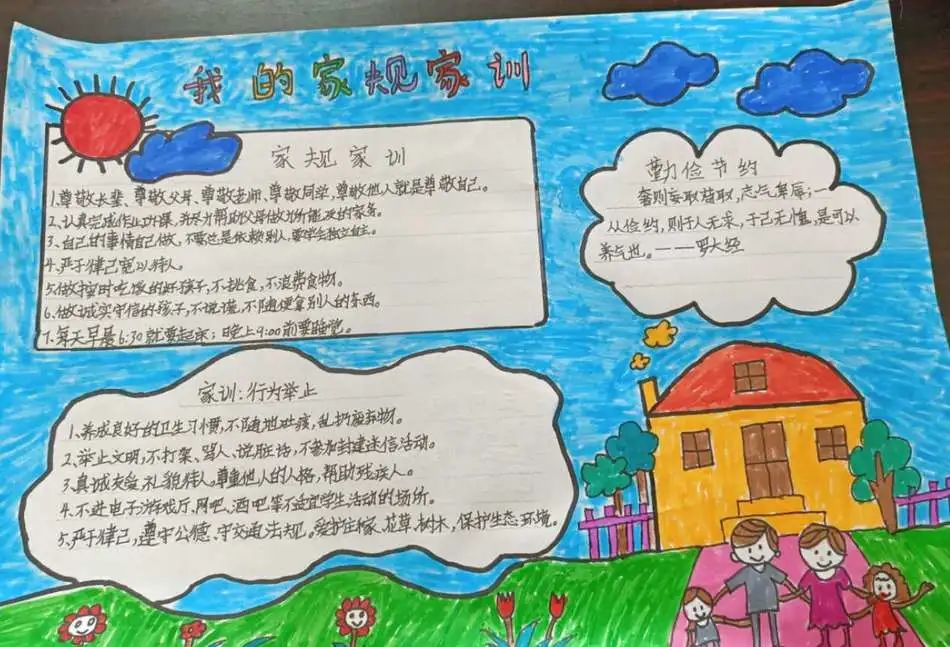 我的家规家训
家规家训
1.尊敬长辈、尊敬父母、尊敬老师、尊敬同学,尊敬他人就是尊敬自己。
2、认真完成作业功课,努力帮助父母做力所能及的家务。
3、自己的事情自己做,不要总是依赖别人,要学会独立自主。
4.严于律己宽以待人。
5.做按时吃饭的好孩子,不挑食,不浪费食物。
6.做诚实守信的孩子,不说谎,不随便拿别人的东西。
7.每天早晨6:30就要起床;晚上9:00前要睡觉。
勤俭节约
奢则妄取苟取,志气卑辱;一
从俭约,则于人无求,于己无愧,是可以
养气也。——罗大经
家训:行为举止
1、养成良好的卫生习惯,不随地吐痰,乱扔废弃物。
2、举止文明,不打架、骂人、说脏话,不参加封建迷信活动。
3、真诚友爱,礼貌待人,尊重他人的人格,帮助残疾人。
4.不进电子游戏厅、网吧、酒吧等不适宜学生活动的场所。
5.严于律己,遵守公德,守交通法规。爱护庄稼、花草、树木,保护生态环境。